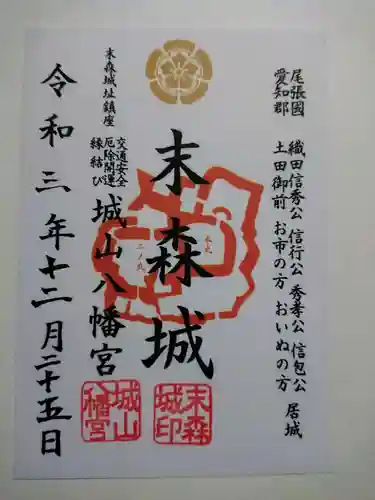 尾張國
愛知郡
織田信秀公 信行公 秀孝公 信包公 居城
土田御前 お市の方 おいぬの方
末森城
本丸
二ノ丸
末森城印
末森城址鎮座
交通安全
厄除開運
縁結び
城山八幡宮
城山八幡宮
令和三年十二月二十五日